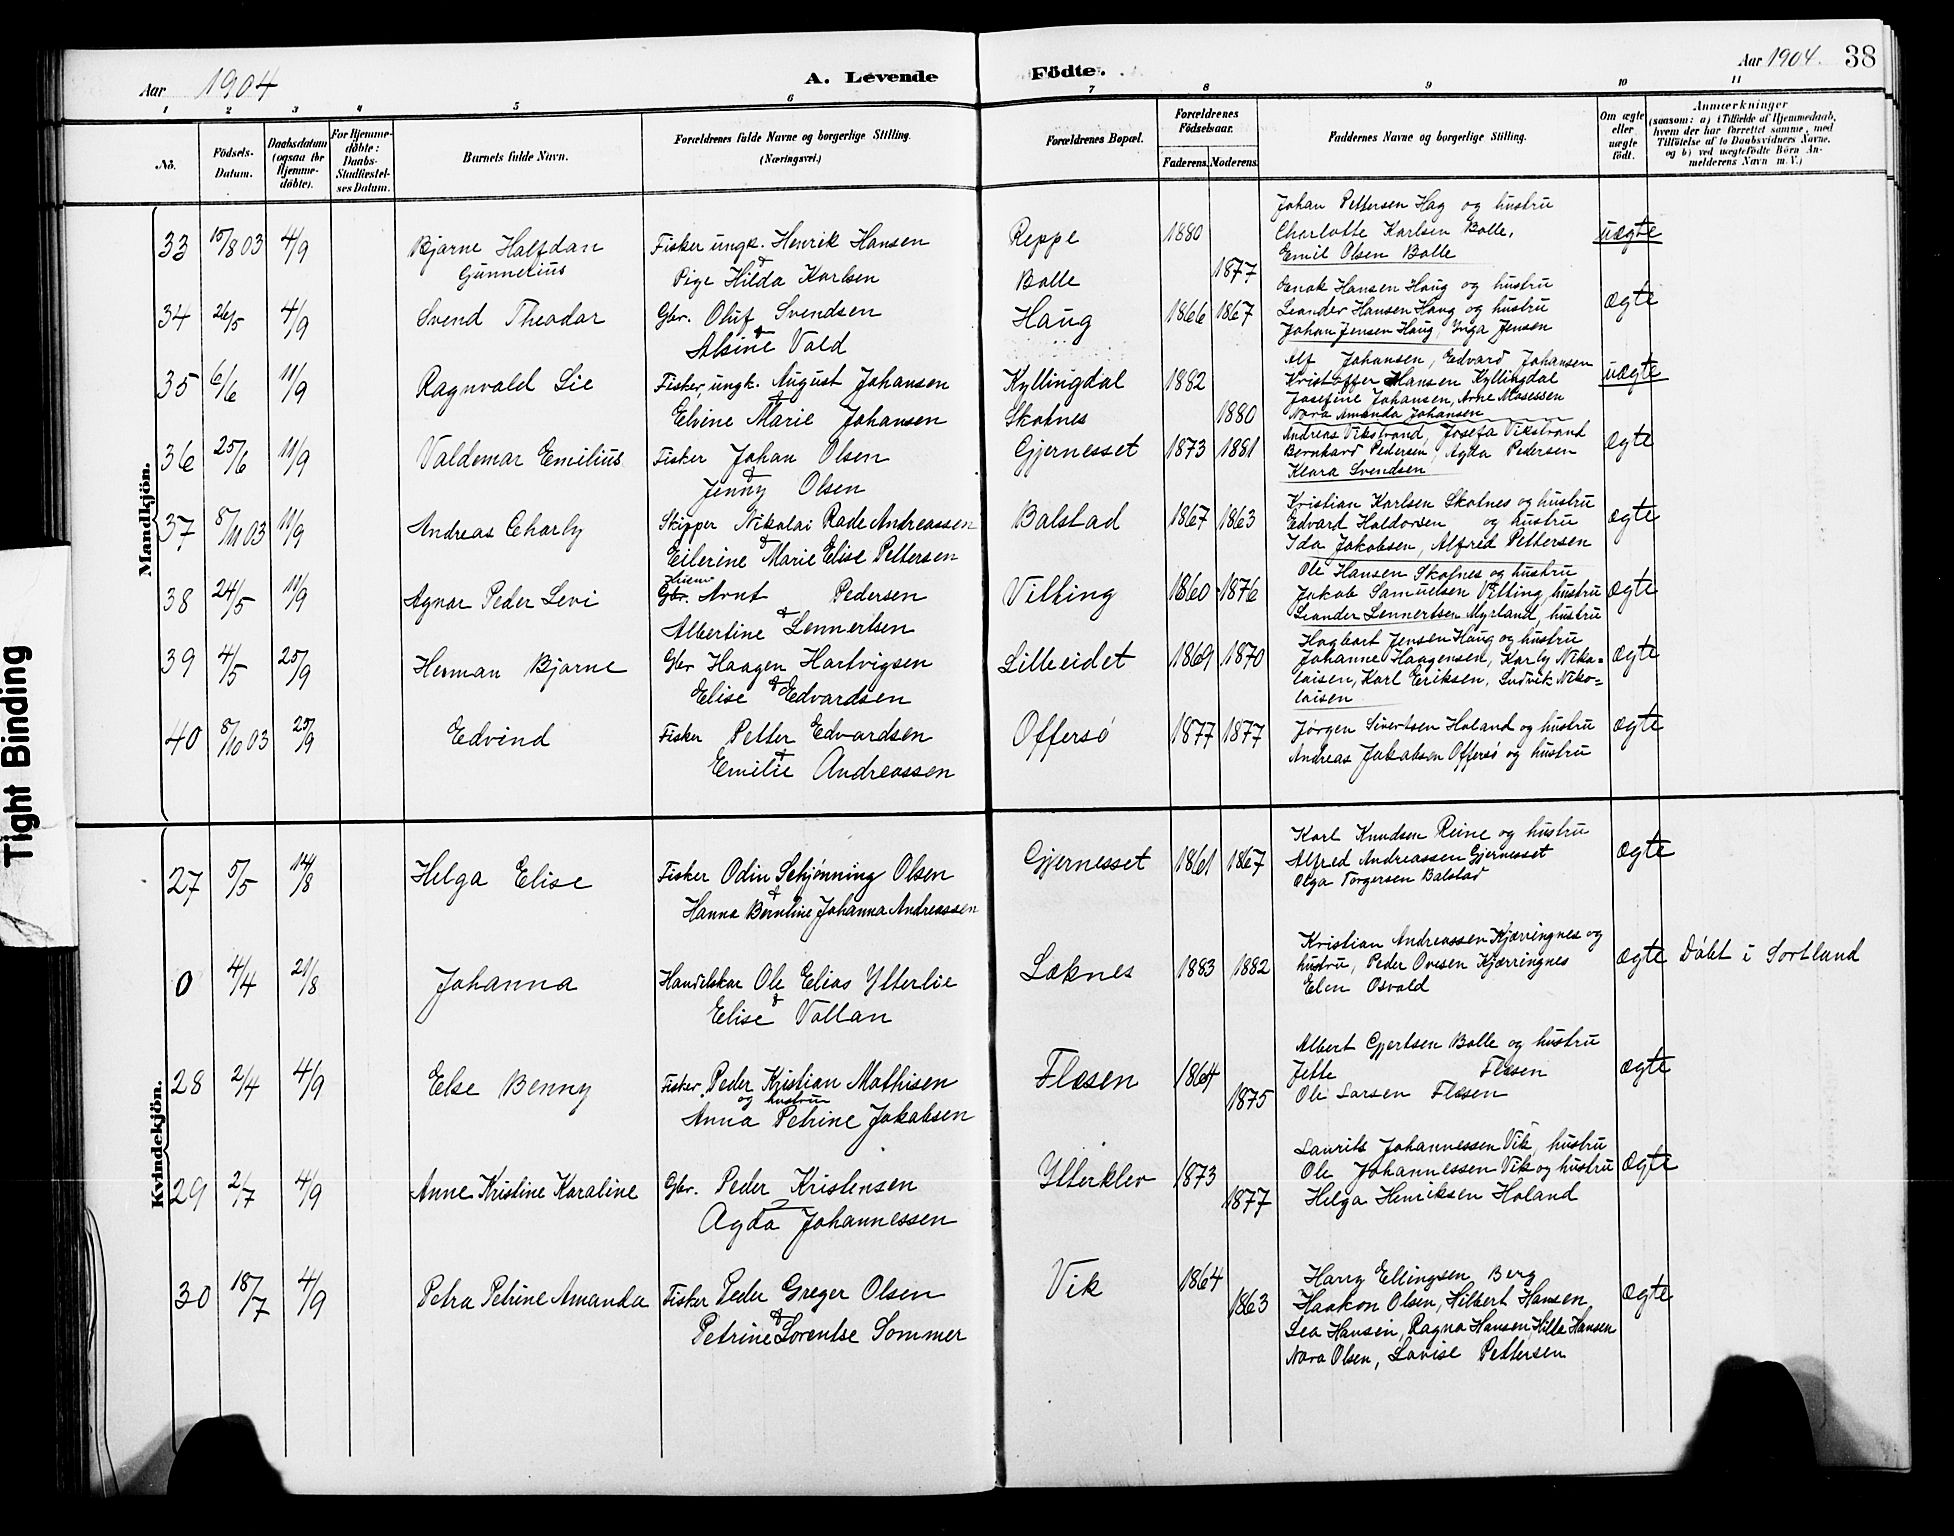 Aar 1904
A. Levende
Födte.
Aar 1904. 38
1 2 3 4 5 6 7 8 9 10 11
No.
Födsels-
Datum.
Daabsdatum
(ogsaa for
Hjemme-
döbte).
For Hjemme-
döbte:
Daabs-
Stadfæstel-
ses Datum.
Barnets fulde Navn.
Forældrenes fulde Navne og borgerlige Stilling.
(Næringsvei.)
Forældrenes Bopæl.
Forældrenes
Födselsaar.
Faderens. Moderens.
Faddernes Navne og borgerlige Stilling.
Om ægte
eller
uægte
födt.
Anmærkninger
(saasom: a) i Tilfælde af Hjemmedaab,
hvem der har forrettet samme, med
Tilföielse af to Daabsvidners Navne,
og b) ved uægtefödte Börn An-
melderens Navn m. V.)
Tight Binding
Mandkjön.
33 15/8 03 4/9 Bjarne Halfdan Fisker ungk. Henrik Hansen Reppe 1880 Johan Pettersen Hag og hustru uægte
Gunnelius & Pige Hilda Karlsen Balle 1877 Charlotte Karlsen Bolle,
Emil Olsen Balle
34 26/5 4/9 Svend Theodor Gbr. Oluf Svendsen Haug 1866 1867 Enok Hansen Haug og hustru ægte
& Alsine Vold Leander Hansen Haug og hustru
Johan Jensen Haug, Inga Jensen
35 6/6 11/9 Ragnvald Lie Fisker, ungk. August Johansen Kyllingdal 1882 Alf Johansen, Edvard Johansen uægte
& Elvine Marie Johansen Skotnes 1880 Kristoffer Hansen Kyllingdal
Josefine Johansen, Arne Mosessen
Nora Amanda Johansen
36 25/6 11/9 Valdemar Emilius Fisker Johan Olsen Gjernesset 1873 1881 Andreas Vikstrand, Josefa Vikstrand ægte
& Jenny Olsen Bernhard Pedersen, Agda Pedersen
Klara Svendsen
37 8/11 03 11/9 Andreas Charly Skipper Nikolai Rade Andreassen Balstad 1867 1863 Kristian Karlsen Skotnes og hustru ægte
& Eilerine Marie Elise Pettersen Edvard Haldorsen og hustru
Ida Jakobsen, Alfred Pettersen
38 24/5 11/9 Agnar Peder Levi Gbr. Arnt Pedersen Vilting 1860 1876 Ole Hansen Skotnes og hustru ægte
& Albertine Lennertsen Jakob Samuelsen Vilting, hustru
Leander Lennertsen Myrland, hustru
39 4/5 25/9 Herman Bjarne Gbr Haagen Hartvigsen Lilleeidet 1869 1870 Hagbart Jensen Haug og hustru ægte
& Elise Edvardsen Johanne Haagensen, Karly Niko-
laisen, Karl Eriksen, Ludvik Niko-
laisen
40 8/10 03 25/9 Edvind Fisker Petter Edvardsen Offersø 1877 1877 Jørgen Sivertsen Holand og hustru ægte
& Emilie Andreassen Andreas Jakobsen Offersø og hustru
Kvindekjön.
27 5/5 14/8 Helga Elise Fisker Odin Schjønning Olsen Gjernesset 1861 1867 Karl Knudsen Reine og hustru ægte
& Hanna Berntine Johanna Andreassen Alfred Andreassen Gjernesset
Olga Torgersen Balstad
0 4/4 21/8 Johanna Handelskar Ole Elias Ytterlie Læknes 1883 1882 Kristian Andreassen Kjærringnes og ægte Döbt i Sortland
& Elise Vollan hustru, Peder Ovesen Kjærringnes
Elen Osvold
28 2/4 4/9 Else Benny Fisker, Peder Kristian Mathisen Flæsen 1864 Albert Gjertsen Bolle og hustru ægte
og hustru Anna Petrine Jakobsen 1875 Jette Flæsen
Ole Larsen Flæsen
29 2/7 4/9 Anne Kristine Karoline Gbr. Peder Kristensen Ytterklev 1873 Laurits Johannessen Vik, hustru ægte
Agda Johannessen 1877 Ole Johannessen Vik og hustru
Helga Henriksen Holand
30 18/7 4/9 Petra Petrine Amanda Fisker Peder Greger Olsen Vik 1864 Harry Ellingsen Berg ægte
& Petrine Lorentse Sommer 1863 Haakon Olsen, Hilbert Hansen
Lea Hansen, Ragna Hansen, Hilla Hansen
Nora Olsen, Lovise Pettersen